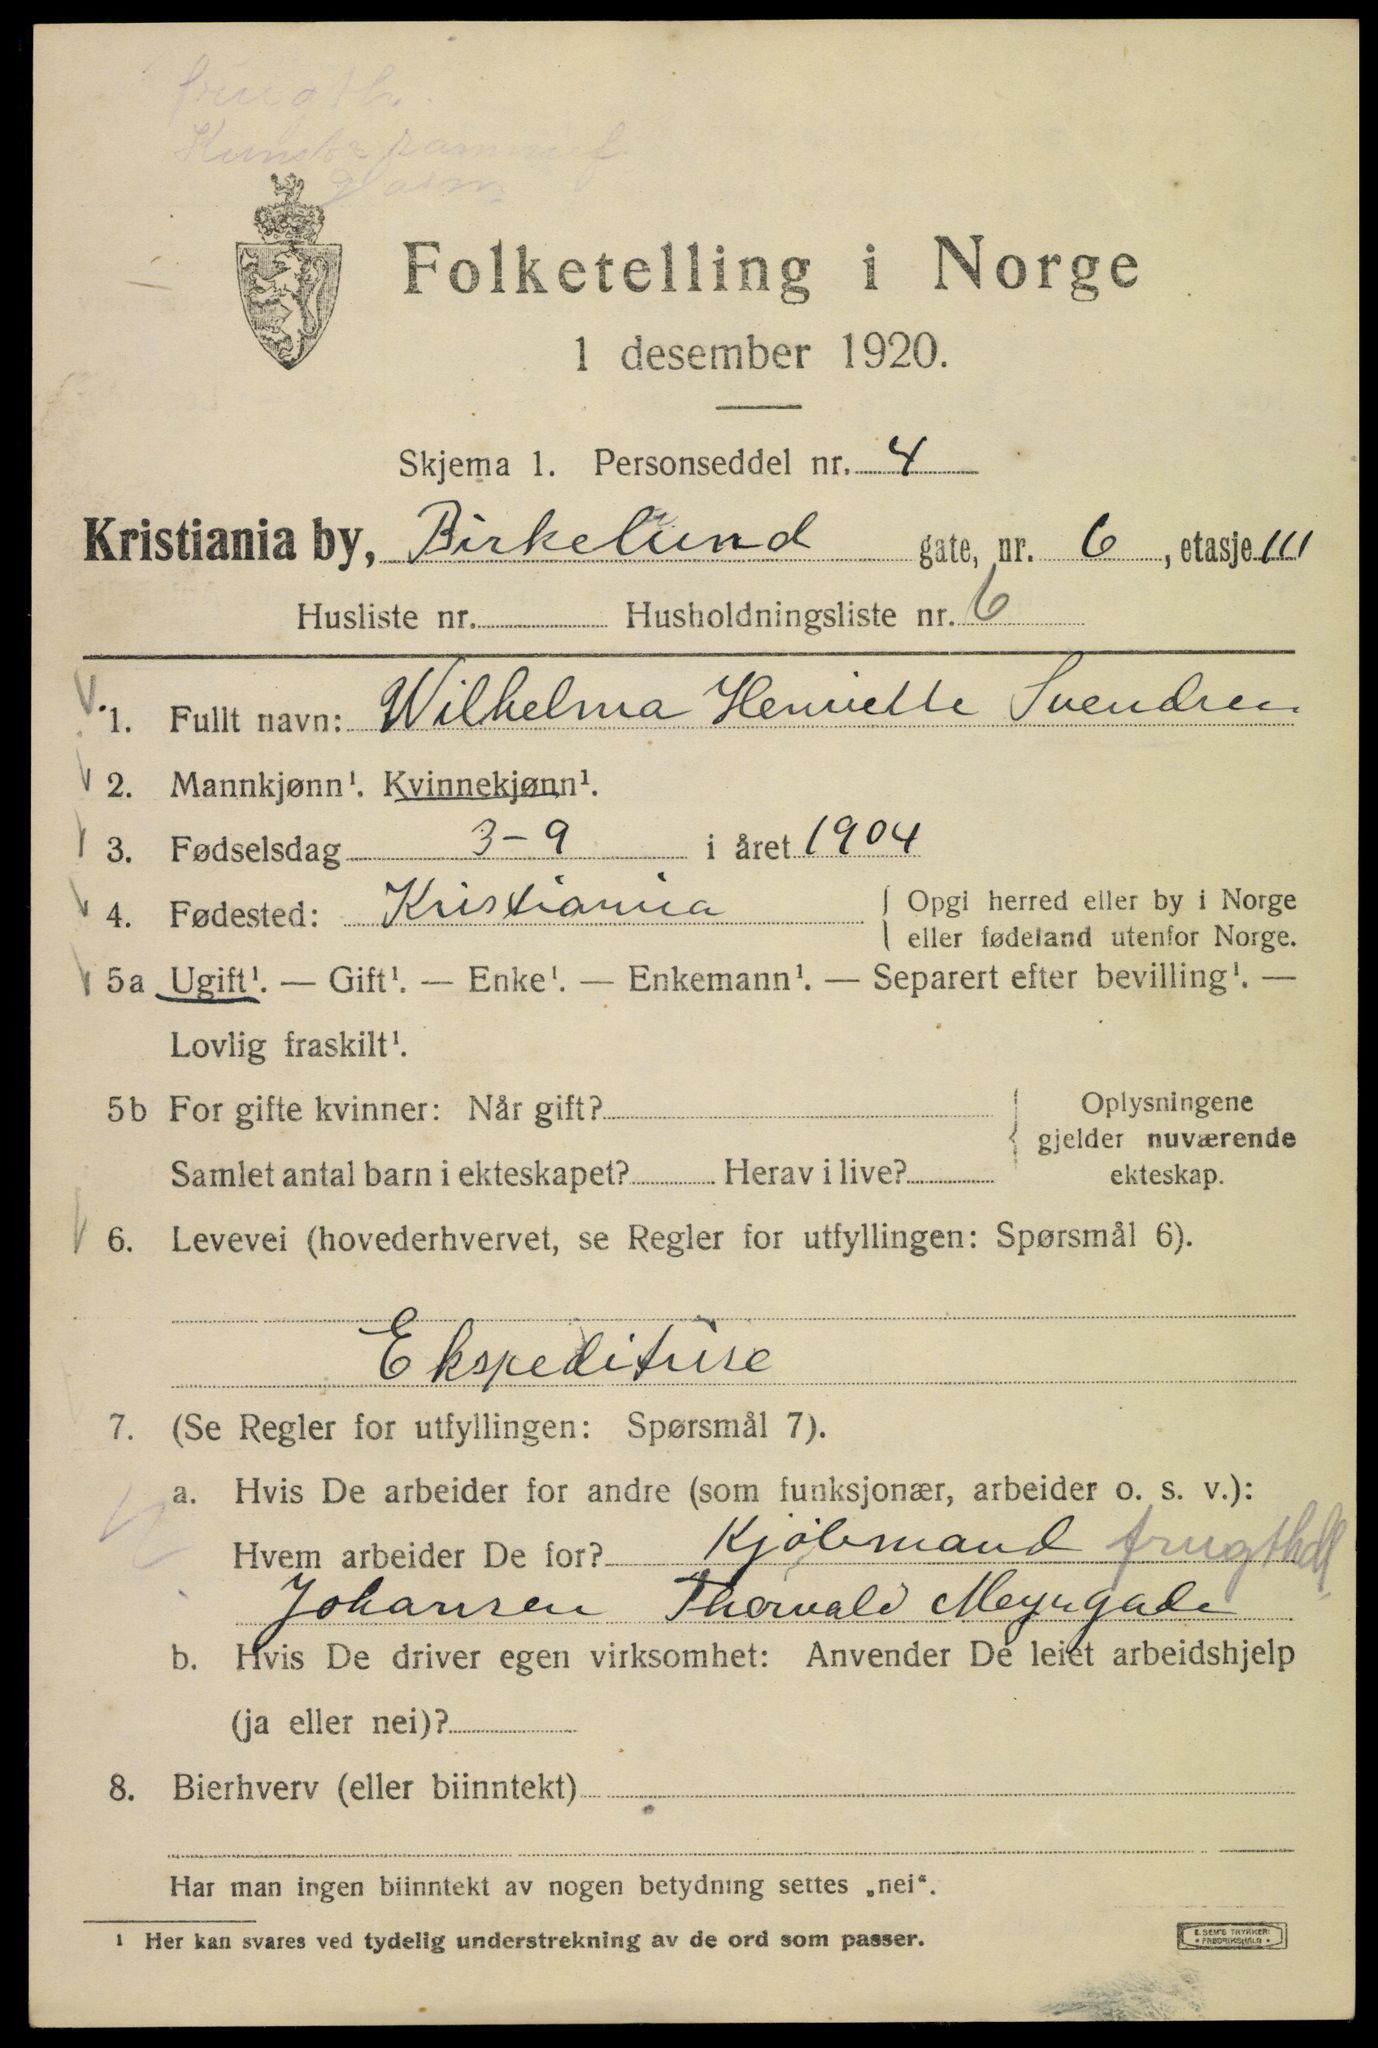 Folketelling i Norge
1 desember 1920.
Skjema 1. Personseddel nr. 4
Kristiania by, Birkelund gate, nr. 6, etasje III
Husliste nr. Husholdningsliste nr. 6
1. Fullt navn: Wilhelma Henriette Svendsen
2. Mannkjønn¹. Kvinnekjønn¹.
3. Fødselsdag 3-9 i året 1904
4. Fødested: Kristiania
Opgi herred eller by i Norge
eller fødeland utenfor Norge.
5a Ugift¹. — Gift¹. — Enke¹. — Enkemann¹. — Separert efter bevilling¹. —
Lovlig fraskilt¹.
5b For gifte kvinner: Når gift?
Samlet antal barn i ekteskapet? Herav i live?
Oplysningene
gjelder nuværende
ekteskap.
6. Levevei (hovederhvervet, se Regler for utfyllingen: Spørsmål 6).
Ekspeditrise
7. (Se Regler for utfyllingen: Spørsmål 7).
a. Hvis De arbeider for andre (som funksjonær, arbeider o. s. v.):
Hvem arbeider De for? Kjöbmand frugthdl.
Johansen Thorvald Meyngade
b. Hvis De driver egen virksomhet: Anvender De leiet arbeidshjelp
(ja eller nei)?
8. Bierhverv (eller biinntekt)
Har man ingen biinntekt av nogen betydning settes „nei“.
¹ Her kan svares ved tydelig understrekning av de ord som passer.
E. SEM'S TRYKKERI
• FREDRIKSHALD •